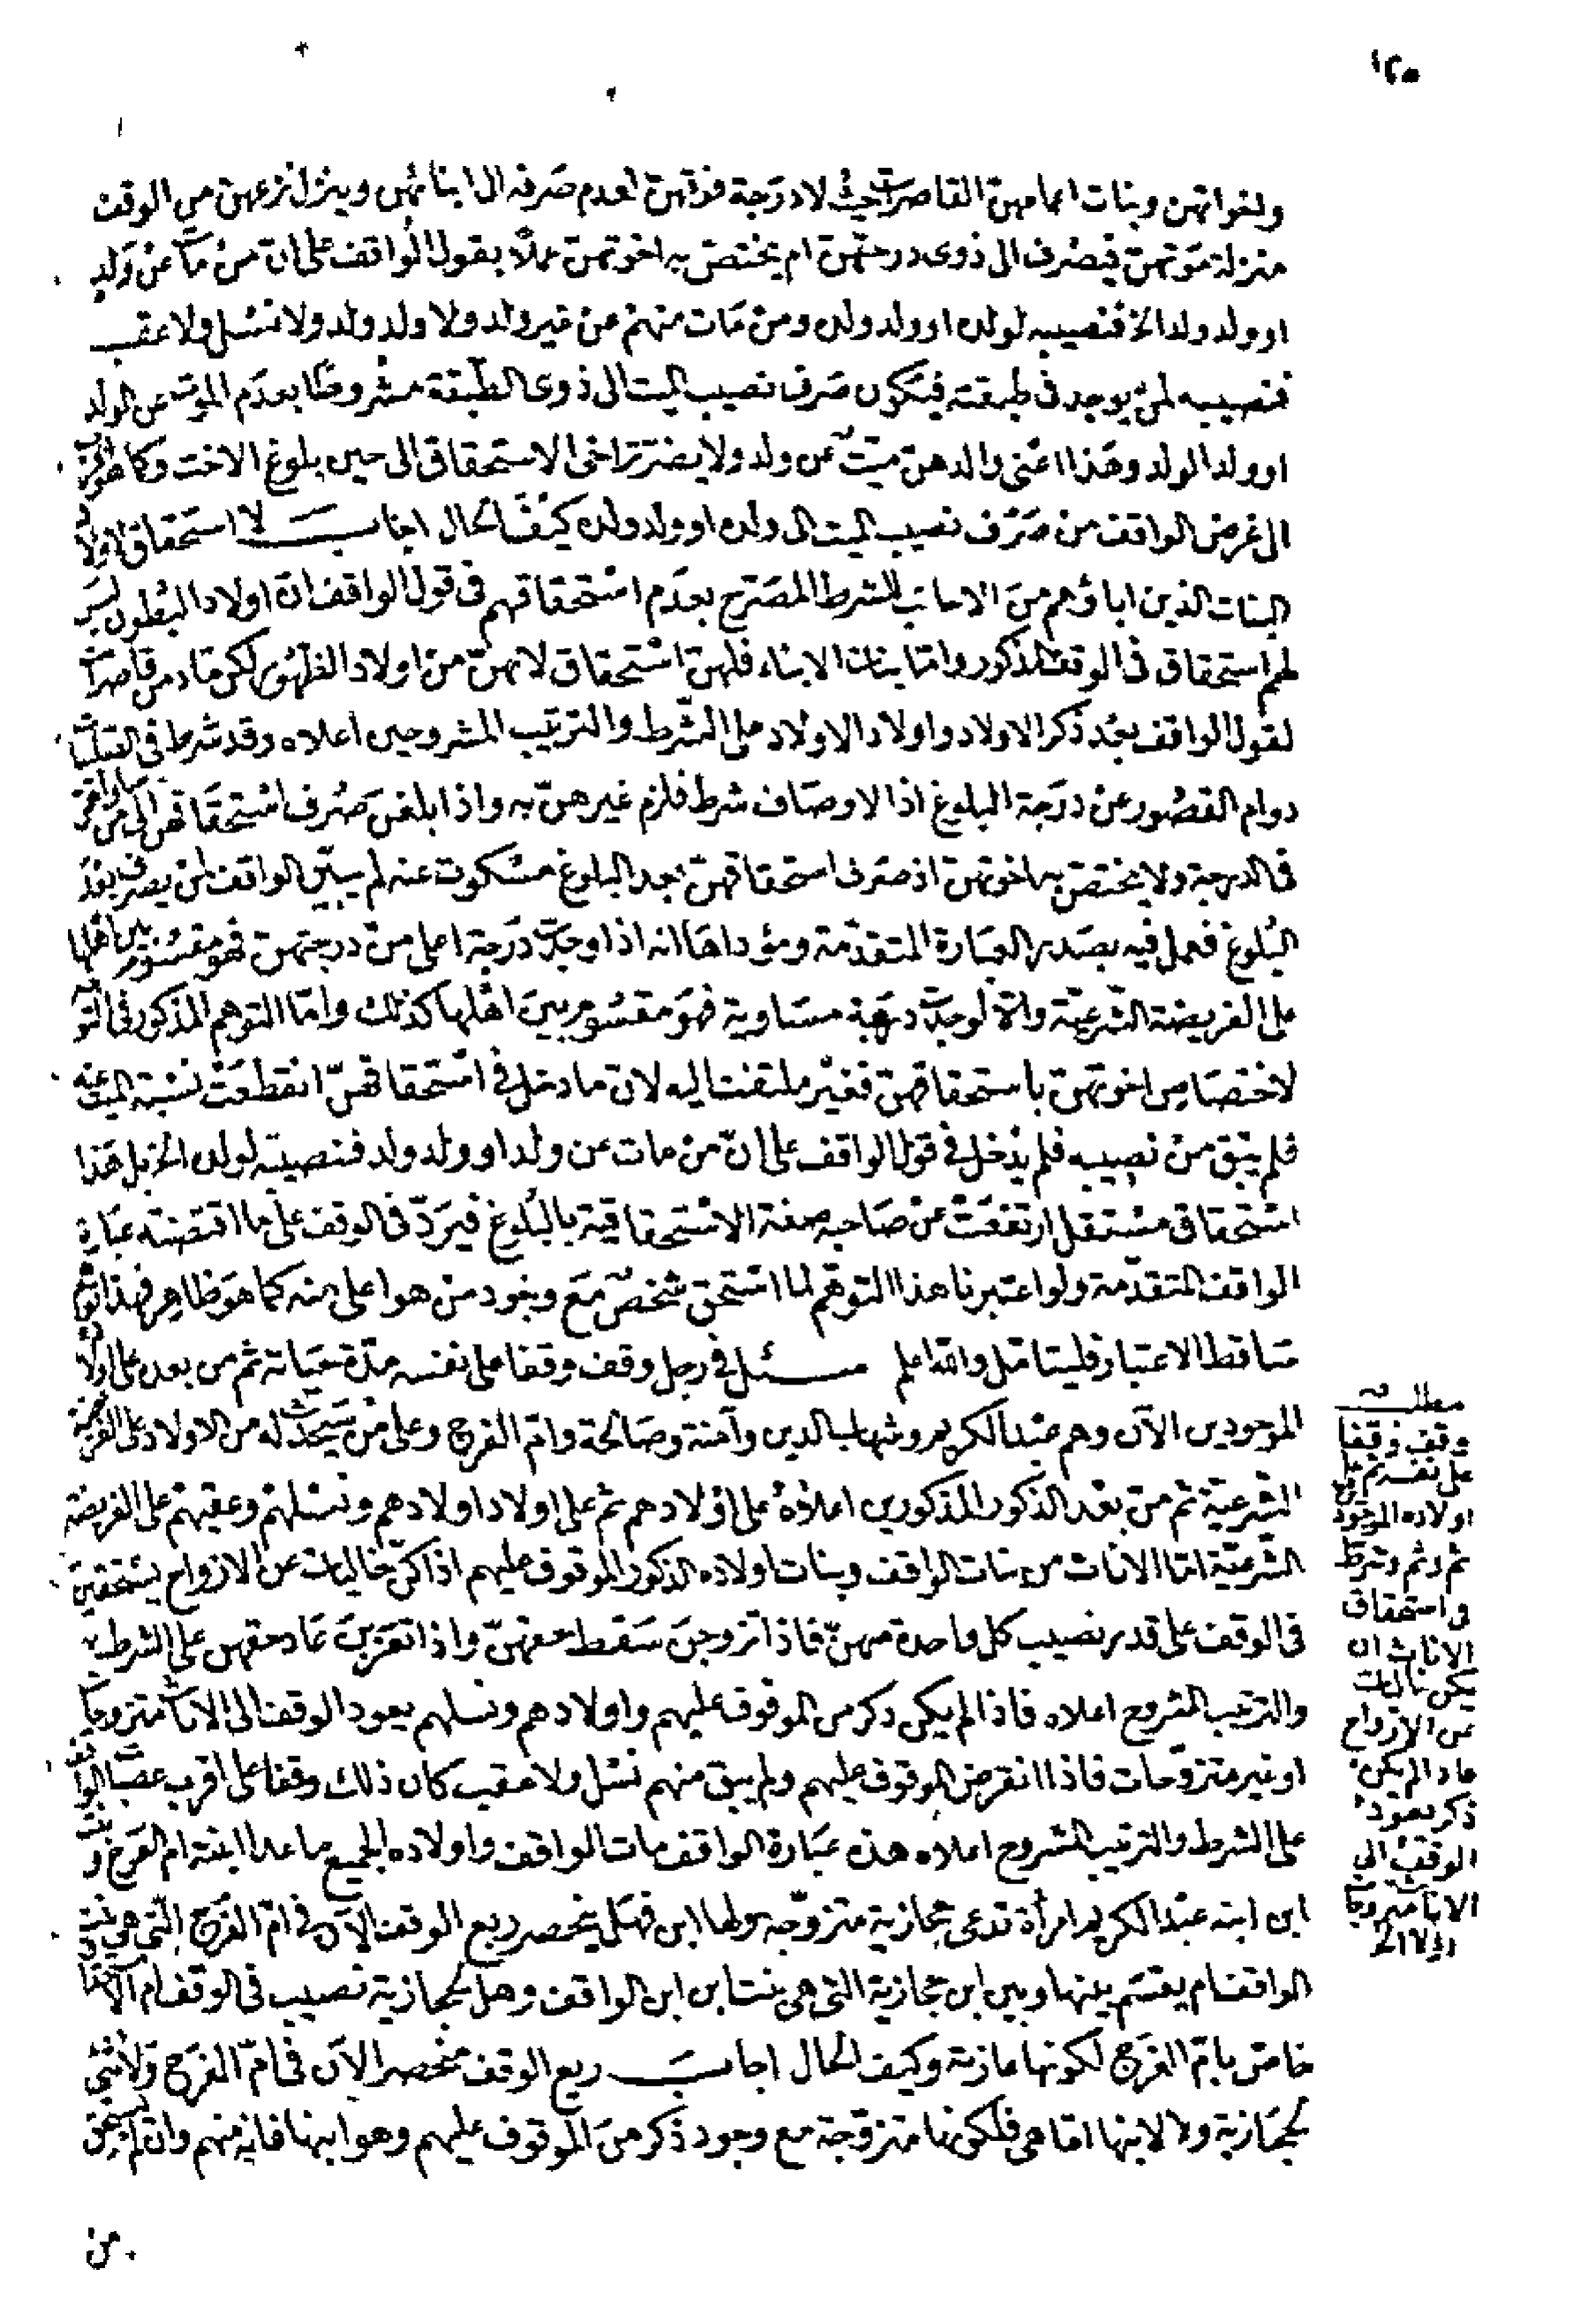 ١٢٥
ولغواتهن وبنات اعمامهن القاصرات حيث لا درجة فوقهن لعدم صرفه الى ابنائهن وينزل نزعهن من الوقف
منزلة موتهن فيصرف الى ذوى درجتهن ام يختص به اخوتهن عملا بقول الواقف على ان من مات عن ولد
او ولد ولد الخ فنصيبه لولده او ولد ولده ومن مات منهم عن غير ولد ولا ولد ولد ولا نسل ولا عقب
فنصيبه لمن يوجد فى طبقته فيكون صرف نصيب الميت الى ذوى الطبقة مشروطا بعدم الموت عن الولد
او ولد الولد وهذا اعنى والدهن ميت عن ولد ولا يضر تراخى الاستحقاق الى حين بلوغ الاخت وكما هو
الى غرض الواقف من صرف نصيب الميت الى ولده او ولد ولده كيف الحال اجاب لا استحقاق لاولاد
البنات الذين اباؤهم من الاجانب للشرط المصرح بعدم استحقاقهم فى قول الواقف ان اولاد البطون ليس
لهم استحقاق فى الوقف المذكور واما بنات الابناء فلهن استحقاق لانهن من اولاد الظهور لكن ما دمن قاصرات
لقول الواقف بعد ذكر الاولاد واولاد الاولاد على الشرط والترتيب المشروحين اعلاه وقد شرط فى البنات
دوام القصور عن درجة البلوغ اذ الاوصاف شرط فلزم غيرهن به واذا بلغن صرف استحقاقهن الى من
فى الدرجة ولا يختص به اخوتهن اذ صرف استحقاقهن بعد البلوغ مسكوت عنه لم يبين الواقف لمن يصرف بعد
البلوغ فعمل فيه بصدر العبارة المتقدمة ومؤداها انه اذا وجدت درجة اعلى من درجتهن فهو مقسوم بين اهلها
على الفريضة الشرعية والا لوجدت درجة مساوية فهو مقسوم بين اهلها كذلك واما التوهم المذكور فى
لاختصاص اخوتهن باستحقاقهن فغير ملتفت اليه لان ما دخل فى استحقاقهن انقطعت نسبة الميت عنه
فلم يبق من نصيبه فلم يدخل فى قول الواقف على ان من مات عن ولد او ولد ولد فنصيبه لولده الخ بل هذا
استحقاق مستقل ارتفعت عن صاحبه صفة الاستحقاقية بالبلوغ فيرد فى الوقف على ما اقتضته عبارة
الواقف المتقدمة ولو اعتبرنا هذا التوهم لما استحق شخص مع وجود من هو اعلى منه كما هو ظاهر فهذا
ساقط الاعتبار فليتامل والله اعلم سئل فى رجل وقف وقفا على نفسه مدة حياته ثم من بعده على اولاده
الموجودين الآن وهم عبد الكريم وشهاب الدين وآمنة وصالحة وام الفرج وعلى من سيحدث له من الاولاد على الفريضة
الشرعية ثم من بعد الذكور المذكورين اعلاه على اولادهم ثم على اولاد اولادهم ونسلهم وعقبهم على الفريضة
الشرعية اما الاناث من بنات الواقف وبنات اولاده الذكور الموقوف عليهم اذا كن خاليات عن الازواج يستحقين
فى الوقف على قدر نصيب كل واحدة منهن فاذا تزوجن سقط حقهن واذا تعزبن عاد حقهن على الشرط
والترتيب المشروح اعلاه فاذا لم يكن ذكر من الموقوف عليهم واولادهم ونسلهم يعود الوقف الى الاناث متزوجات
او غير متزوجات فاذا انقرض الموقوف عليهم ولم يبق منهم نسل ولا عقب كان ذلك وقفا على اقرب عصبات الواقف
على الشرط والترتيب المشروح اعلاه هذه عبارة الواقف مات الواقف واولاده الجميع ما عدا ابنته ام الفرج وبنت
ابن ابنه عبد الكريم امرأة تدعى حجازية متزوجه ولها ابن فهل ينحصر ريع الوقف الآن فى ام الفرج التى هى بنت
الواقف ام يقسم بينها وبين ابن حجازية التى هى بنت ابن ابن الواقف وهل لحجازية نصيب فى الوقف ام
خاص بام الفرج لكونها عازبة وكيف الحال اجاب ريع الوقف منحصر الآن فى ام الفرج ولا شئ
لحجازية ولا لابنها اما هى فلكونها متزوجة مع وجود ذكر من الموقوف عليهم وهو ابنها فانه منهم وان لم يستحق
من
مطلب
وقف وقفا
على نفسه ثم على
اولاده الموجود
ثم وثم وشرط
فى استحقاق
الاناث ان
يكن خاليات
عن الازواج
ما دام لم يكن
ذكر يعود
الوقف الى
الاناث متزوجات